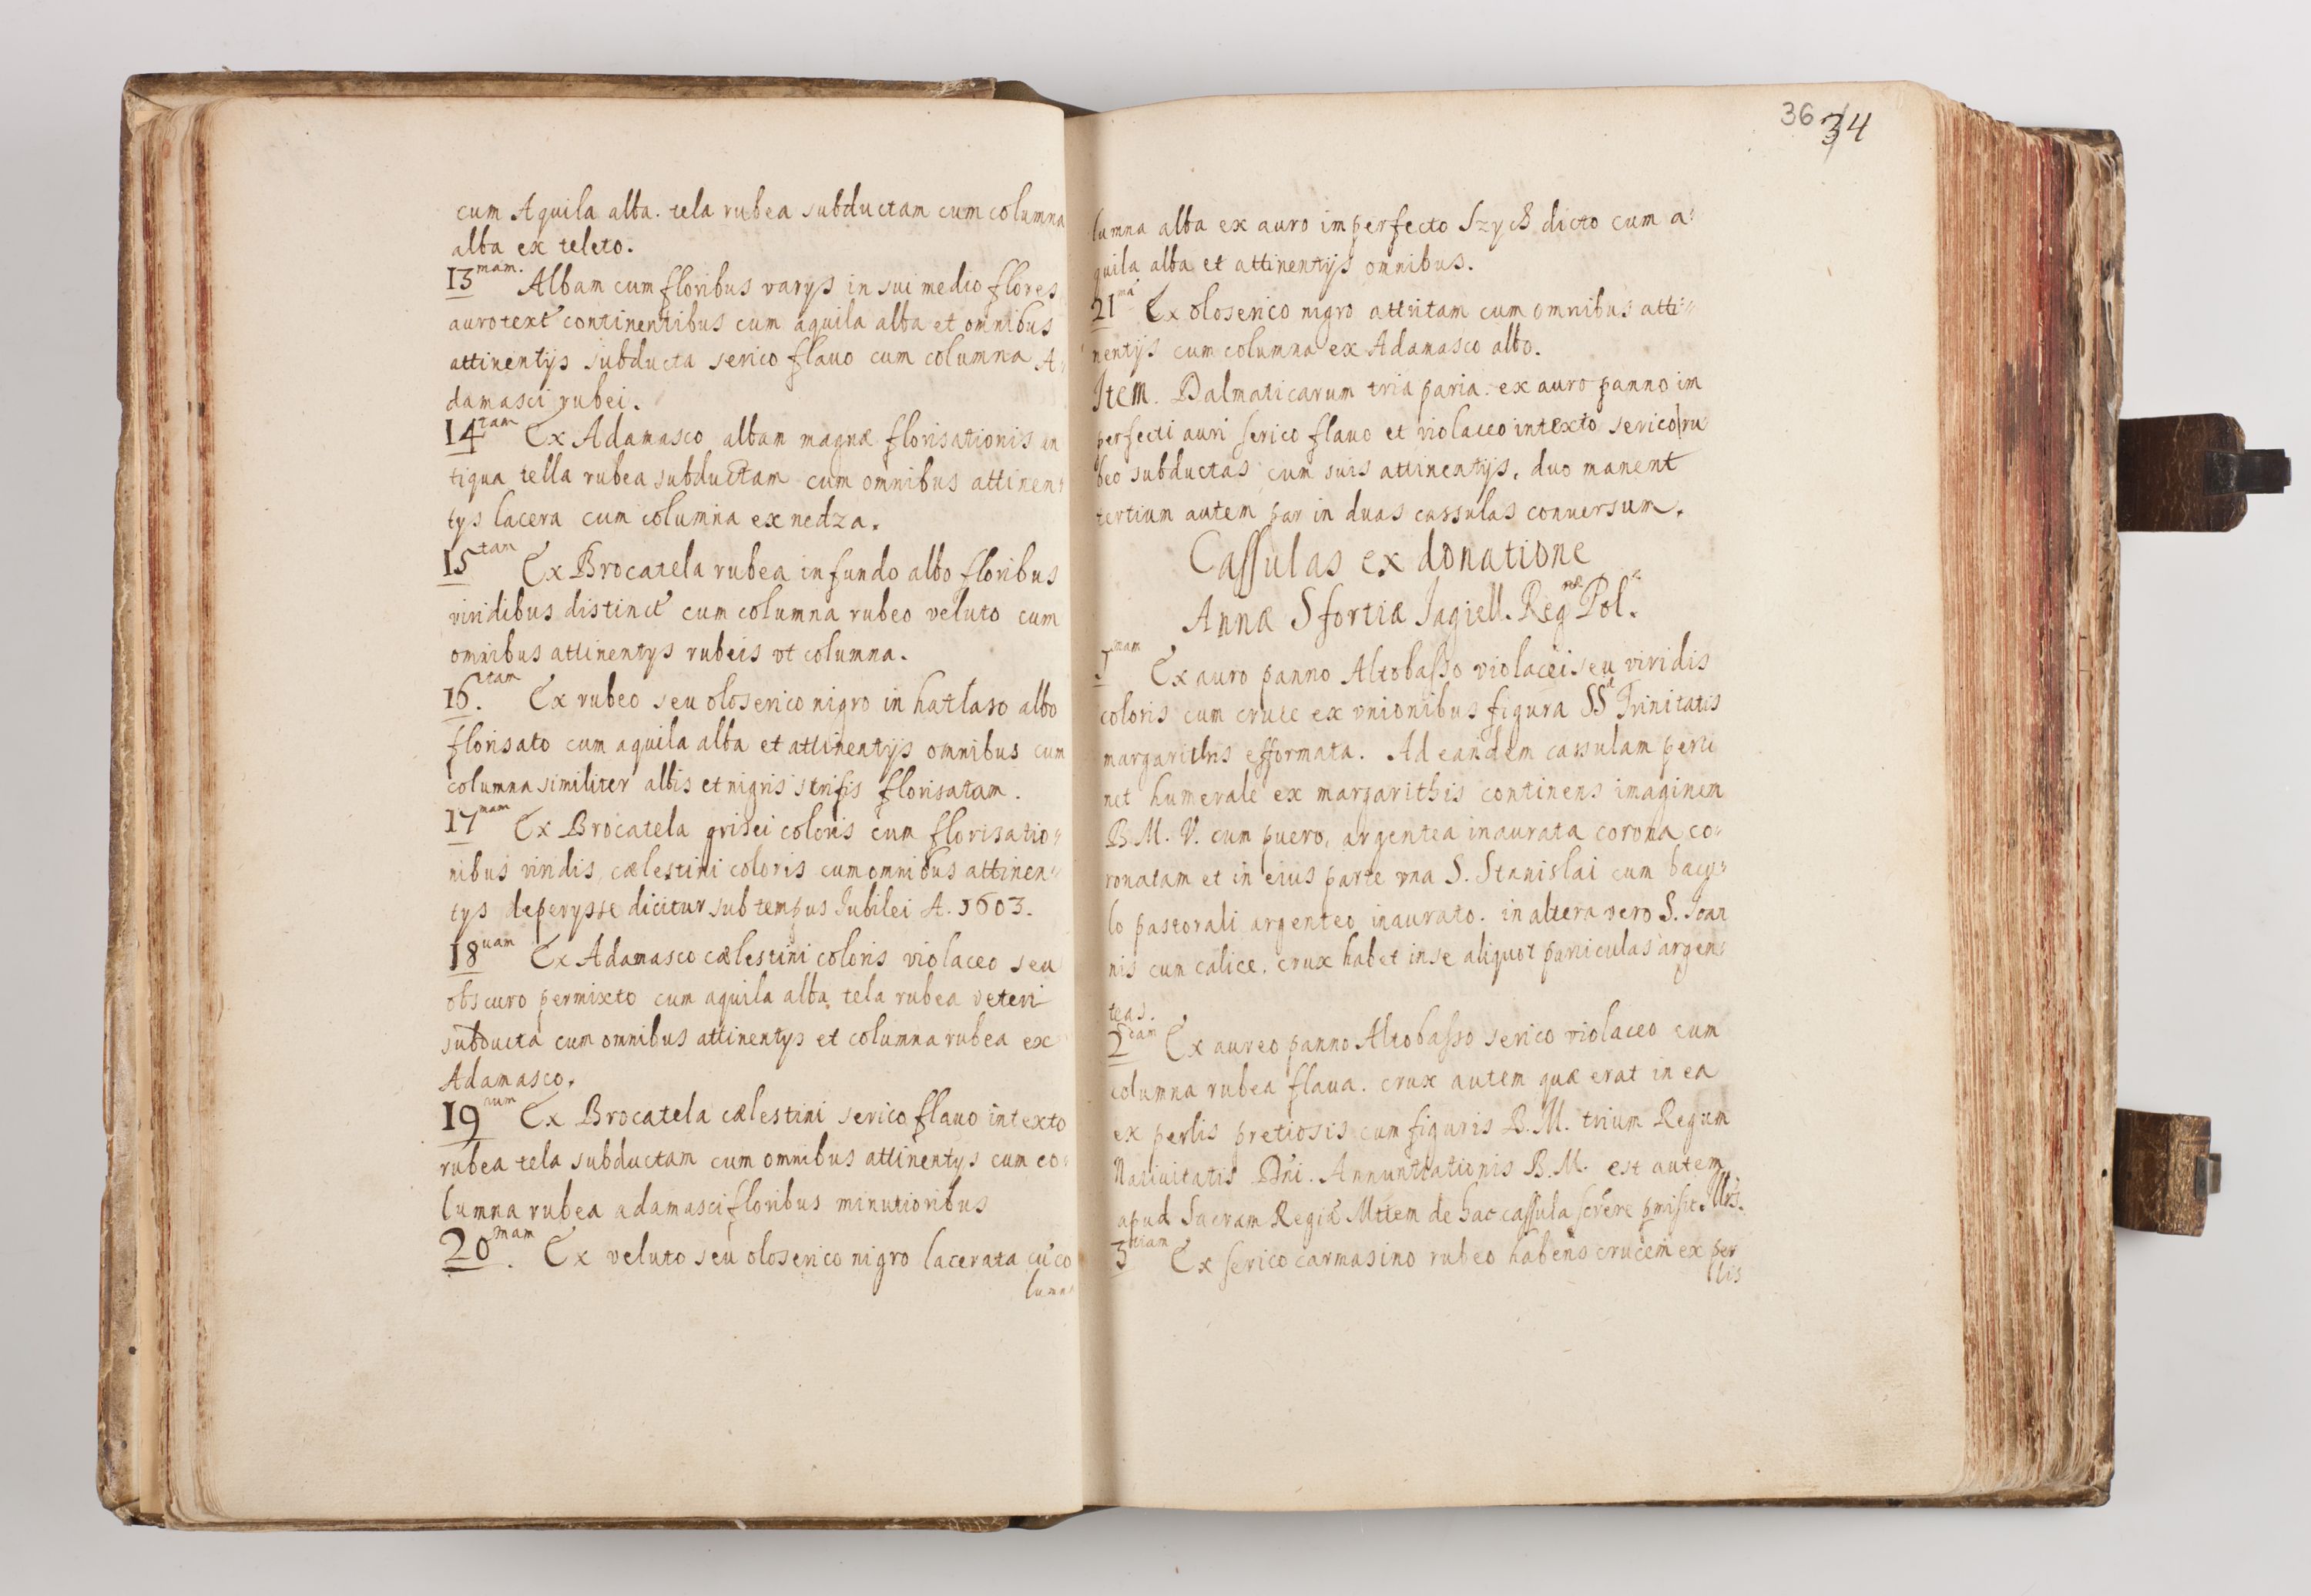 cum Aquila alba. tela rubea subductam cum columna
alba ex teleto.
13mam. Albam cum floribus varys in sui medio flores
aurotext' continentibus cum aquila alba et omnibus
attinentys subducta serico flauo cum columna A-
damasci rubei.
14tam Ex Adamasco albam magnæ florisationis an
tiqua tella rubea subductam cum omnibus attinen-
tys lacera cum columna ex nedza.
15tam Ex Brocatela rubea in fundo albo floribus
viridibus distinct' cum columna rubeo veluto cum
omnibus attinentys rubeis vt columna.
16.tam Ex rubeo seu oloserico nigro in hatlaso albo
florisato cum aquila alba et attinentijs omnibus cum
columna similiter albis et nigris strifis florisatam.
17mam Ex Brocatela grisei coloris cum florisatio-
nibus viridis, cælestini coloris cum omnibus attinen-
tys deperysse dicitur sub tempus Iubilei A. 1603.
18uam Ex Adamasco cælestini coloris violaceo seu
obscuro permixto cum aquila alba, tela rubea veteri
subducta cum omnibus attinentys et columna rubea ex
Adamasco.
19num Ex Brocatela cælestini serico flauo intexto
rubea tela subductam cum omnibus attinentys cum co-
lumna rubea adamasci floribus minutioribus
20mam. Ex veluto seu oloserico nigro lacerata cu' co
lumna
36 34
lumna alba ex auro imperfecto Szych dicto cum a-
quila alba et attinentijs omnibus.
21ma Ex oloserico nigro attritam cum omnibus atti-
nentijs cum columna ex Adamasco albo.
Item. Dalmaticarum tria paria. ex auro panno im
perfecti auri serico flauo et violaceo intexto serico ru
beo subductas cum suis attinentijs, duo manent
tertium autem par in duas cassulas conuersum.
Cassulas ex donatione
Annæ Sfortiæ Jagiell. Regnæ Pol.æ
1mam Ex auro panno Altobasso violacei seu viridis
coloris cum cruce ex vnionibus figura SSæ Trinitatis
margarithis efformata. Ad eandem cassulam perti
net humerale ex margarithis continens imaginem
B. M. V. cum puero, argentea inaurata corona co-
ronatam et in eius parte vna S. Stanislai cum bacu-
lo pastorali argenteo inaurato. in altera vero S. Ioan
nis cum calice. crux habet in se aliquot particulas argen-
teas.
2dam Ex aureo panno Altobasso serico violaceo cum
columna rubea flaua. crux autem quæ erat in ea
ex perlis pretiosis cum figuris B. M. trium Regum
Natiuitatis Dni. Annuntiationis B. M. est autem
apud Sacram Regia' Mttem de hac cassula promisit
3tiam Ex serico carmasino rubeo habens crucem ex per
lis